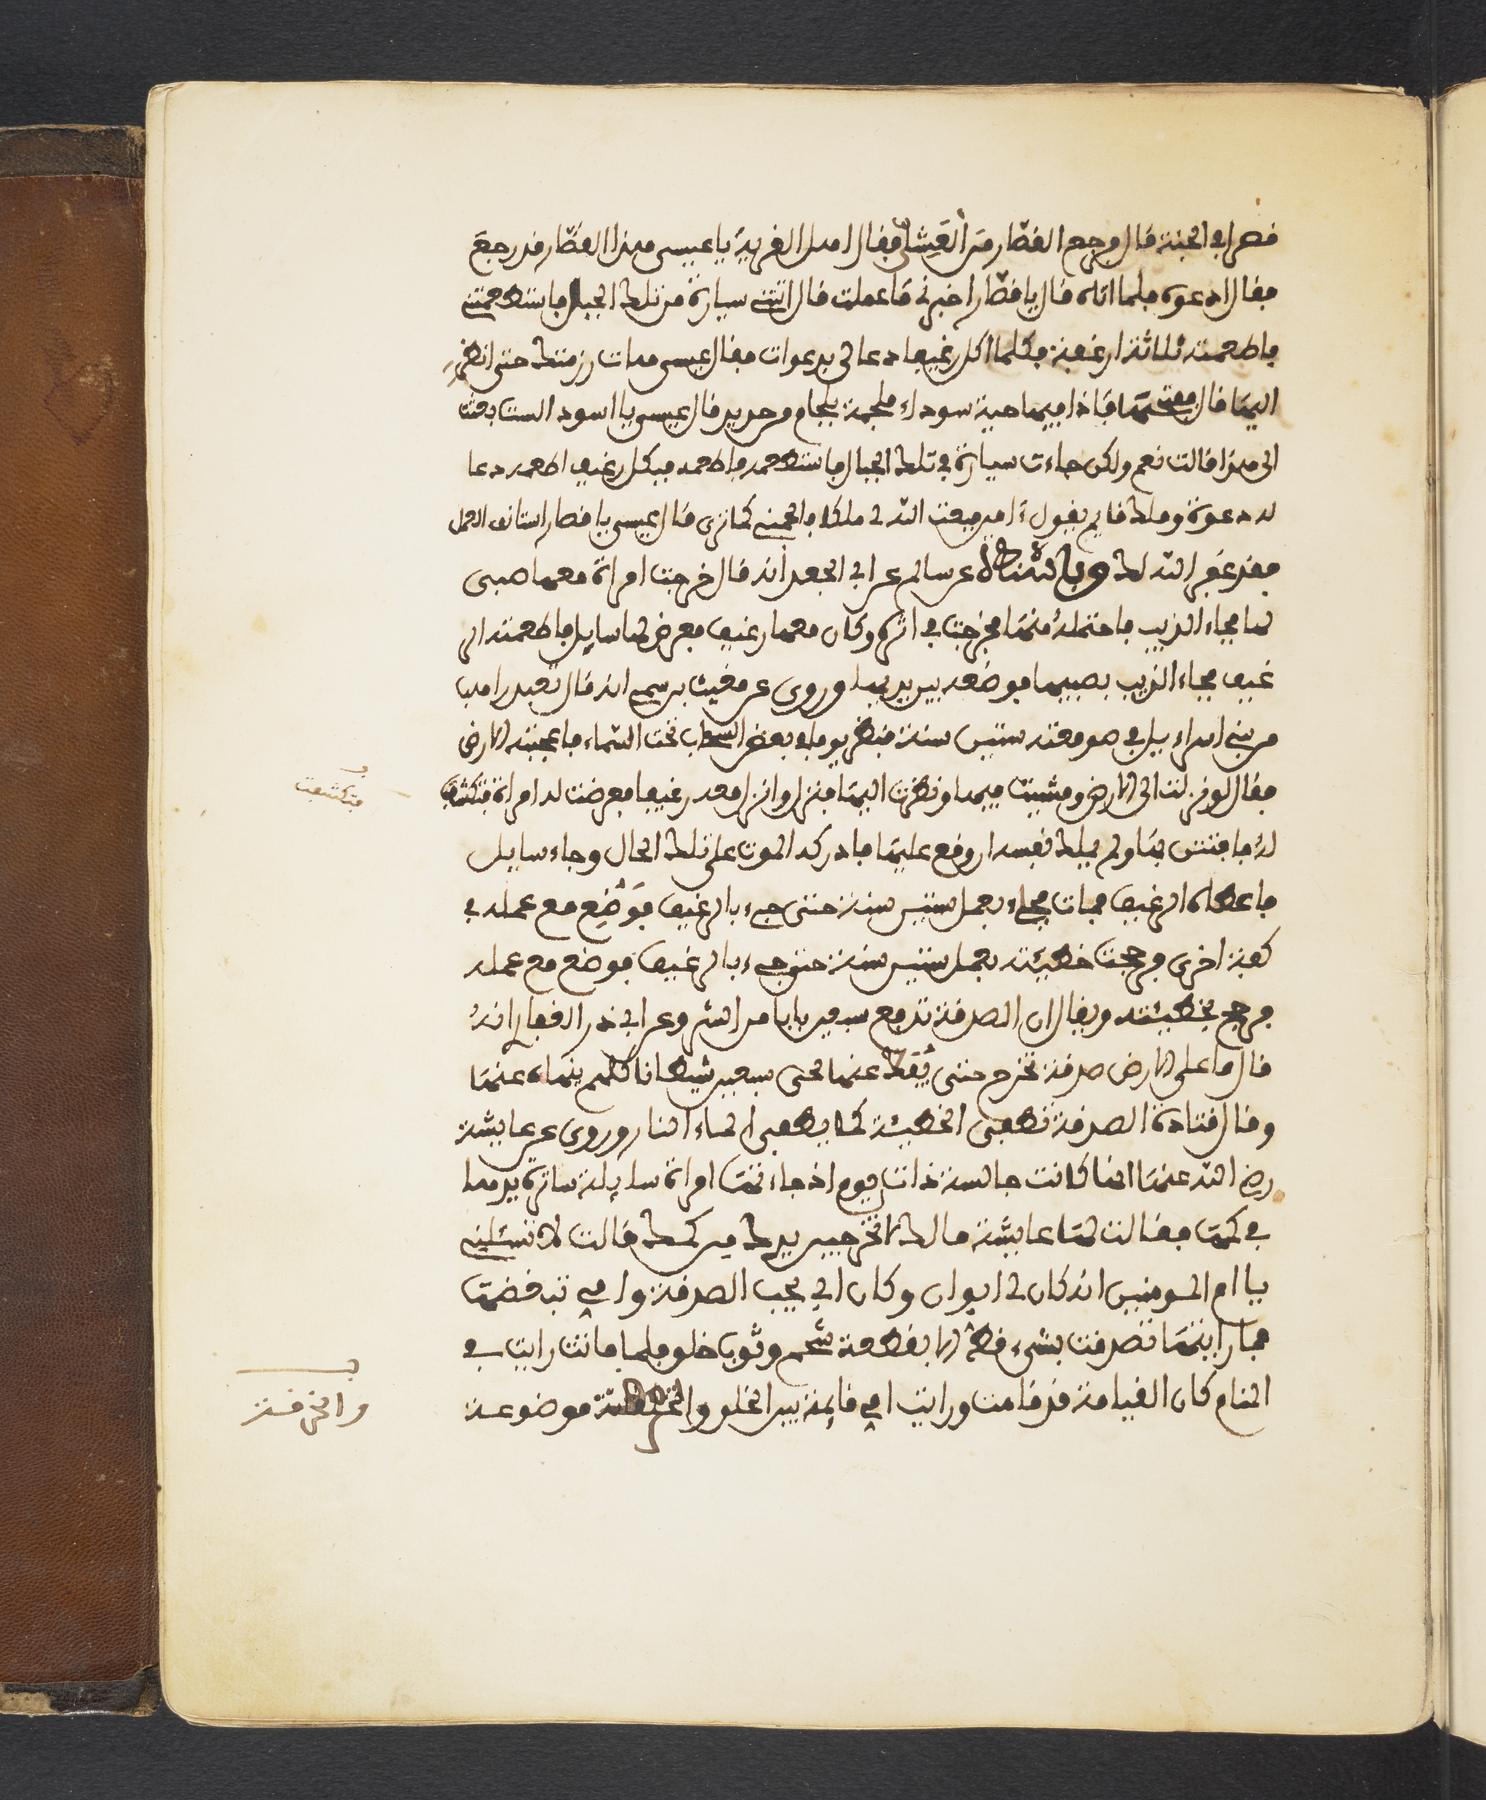 قصرا في الجنة قال فرجع القصّار من العشي فقال اهل القرية يا عيسى هذا القصّار قد رجع
فقال ادعوه فلما اتاه قال يا قصّار اخبرني ما عملت قال اتتني سيارة من تلك الجبال فاستطعمتني
فاطعمته ثلاثة ارغفة فكلما اكل رغيفا دعا لي بدعوات فقال عيسى هات رزمتك حتى انظر
اليها قال ففتحها فاذا فيها حية سوداء ملجمة بلجام من حديد قال عيسى يا اسود الست بعثت
الى هذا قالت نعم ولكن جاءت سيارة في تلك الجبال فاستطعمه فاطعمه فبكل رغيف اطعمه دعا
له دعوة وملك قايم يقول ءامين فبعث الله لي ملكا فالجمني كما ترى قال عيسى يا قصار استانف العمل
فقد غفر الله لك وبالاسناد عن سالم عن ابي الجعد انه قال خرجت امراة معها صبي
لها فجاء الذيب فاحتمله منها فخرجت في اثره وكان معها رغيف فعرض لها سايل فاطعمته الر
غيف فجاء الذيب بصبيها فوضعه بين يديها وروى عن مغيث بن سمي انه قال تعبد راهب
من بني اسراءيل في صومعته ستين سنة فنظر يوما في بعض السحاب تحت السماء فاعجبته الارض
فقال لو نزلت الى الارض ومشيت فيها ونظرت اليها فنزل وانزل معه رغيفا فعرضت له امراة فتكشفت
له فافتتن بها ولم يملك نفسه ان وقع عليها فادركه الموت على تلك الحال وجاء سايل
فاعطاه الرغيف فمات فجاء بعمل ستين سنة حتى جيء بالرغيف فوضع مع عمله في
كفة اخرى فرجحت خطيئته بعمل ستين سنة حتى جيء بالرغيف فوضع مع عمله
فرجح بخطيئته ويقال ان الصدقة تدفع سبعين بابا من الشر وعن ابي ذر الغفار انه
قال ما على الارض صدقة تخرج حتى يفك عنها لحى سبعين شيطانا كلهم ينهاه عنها
وقال قتادة الصدقة تطفي الخطيئة كما يطفي الماء النار وروى عن عايشة
رضي الله عنها انها كانت جالسة ذات يوم اذ جاءتها امراة سايلة ساترة يدها
في كمها فقالت لها عايشة مالك لا تخرجين يدك من كمك قالت لا تسئليني
يا ام المومنين انه كان لي ابوان وكان ابي يحب الصدقة وامي تبغضها
فما رايتها تصدقت بشيء قط الا بقطعة شحم وثوب خلق فلما ماتت رايت في
المنام كان القيامة قد قامت ورايت امي قايمة بين الخلق والخرقة موضوعة
فتكشفت
والخرقة